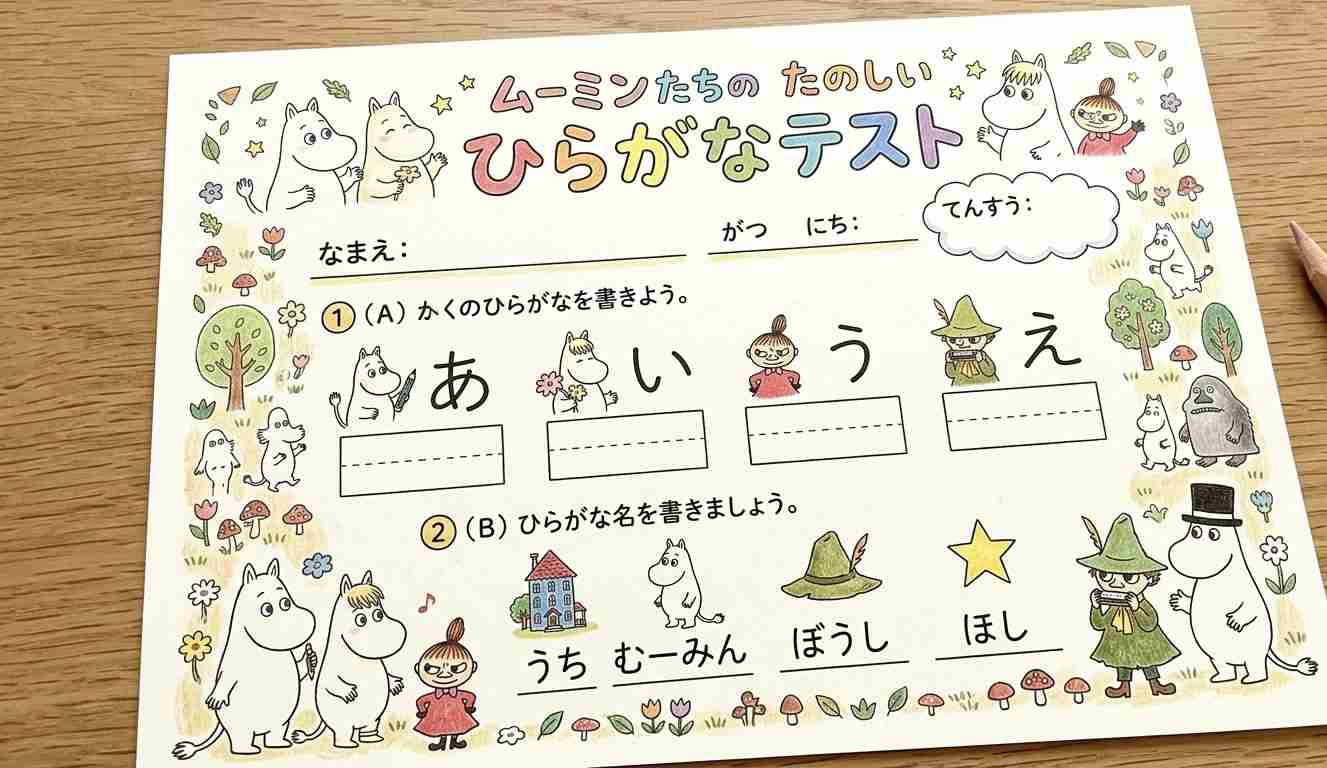 ムーミンたちの たのしい
ひらがなテスト
なまえ:
がつ にち:
てんすう:
1 (A) かくのひらがなを書きよう。
あ い う え
2 (B) ひらがな名を書きましょう。
うち むーみん ぼうし ほし